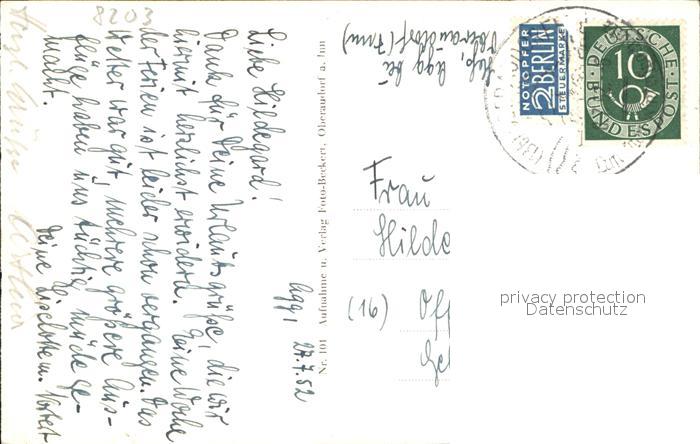 8203
Agg, 27.7.52
Liebe Hildegard!
Dank für Deine Urlaubsgrüße, die wir
hiermit herzlichst erwidern. Eine Woche
der Ferien ist leider schon vergangen. Das
Wetter war gut, mehrere größere Aus-
flüge haben uns tüchtig müde ge-
macht.
Deine Lieselottem.
Herzl. Grüße
Nr. 101 Aufnahme u. Verlag Foto-Beckert, Oberaudorf a. Inn
Agg bei
Oberaudorf (Inn)
NOTOPFER
2 BERLIN
STEUERMARKE
DEUTSCHE
10
BUNDESPOST
Frau
Hilde
(16) Off
privacy protection
Datenschutz